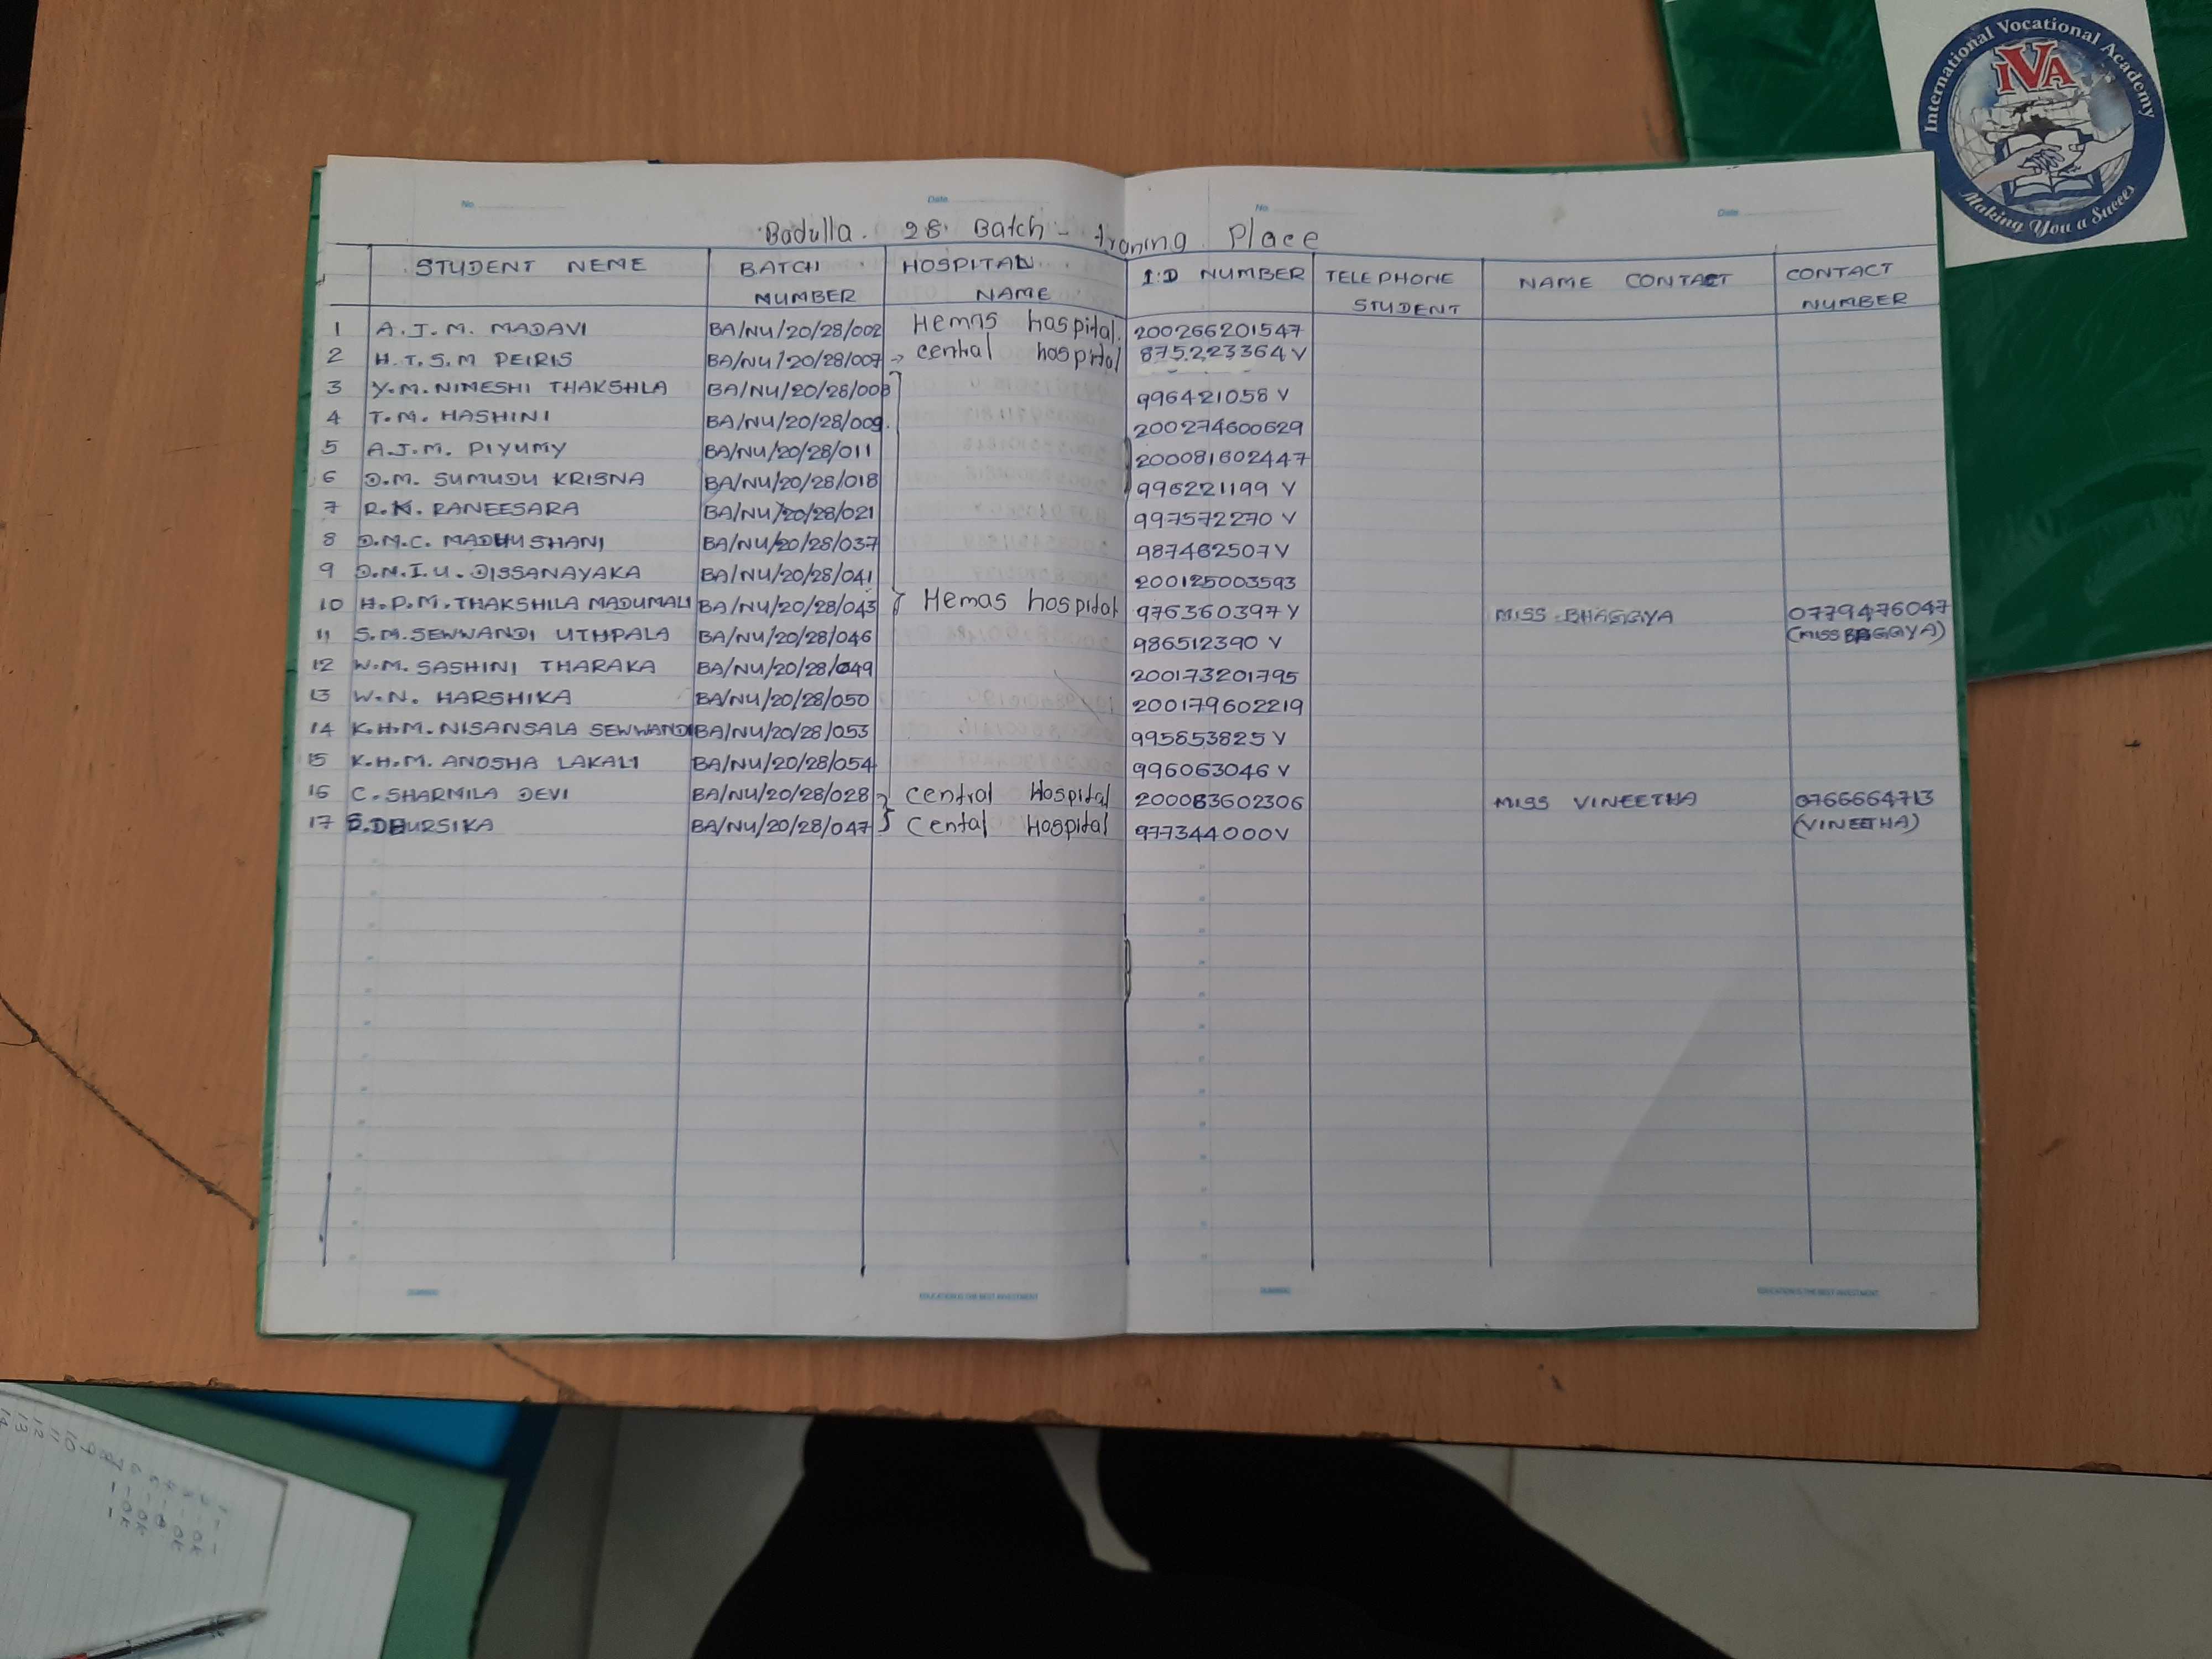 International Vocational Academy
IVA
Making You a Succes
No. Date No. Date
Badulla. 28 Batch - traning Place
STUDENT NEME BATCH NUMBER HOSPITAL NAME I.D NUMBER TELEPHONE STUDENT NAME CONTACT CONTACT NUMBER
1 A.J.M. MADAVI BA/NU/20/28/002 Hemas hospital. 200266201547
2 H.T.S.M PEIRIS BA/NU/20/28/007 → central hospital 875223364 V
3 Y.M.NIMESHI THAKSHLA BA/NU/20/28/008 996421058 V
4 T.M. HASHINI BA/NU/20/28/009. 200274600629
5 A.J.M. PIYUMY BA/NU/20/28/011 200081602447
6 D.M. SUMUDU KRISNA BA/NU/20/28/018 996221199 V
7 R.K. RANEESARA BA/NU/20/28/021 997572270 V
8 D.M.C. MADHUSHANI BA/NU/20/28/037 987462507 V
9 D.M.I.U. DISSANAYAKA BA/NU/20/28/041 200125003593
10 H.P.M. THAKSHILA MADUMALI BA/NU/20/28/043 } Hemas hospital 976360397 V MISS BHAGGYA 0779476047
11 S.M.SEWWANDI UTHPALA BA/NU/20/28/046 986512390 V (MISS BAGGYA)
12 W.M. SASHINI THARAKA BA/NU/20/28/049 200173201795
13 W.N. HARSHIKA BA/NU/20/28/050 200179602219
14 K.H.M. NISANSALA SEWWANDI BA/NU/20/28/053 995653825 V
15 K.H.M. ANOSHA LAKALI BA/NU/20/28/054 996063046 V
16 C. SHARMILA DEVI BA/NU/20/28/028 } Central Hospital 200083602306 MISS VINEETHA 0766664713
17 S.DHURSIKA BA/NU/20/28/047 } Cental Hospital 977344000V (VINEETHA)
EDUCATION IS THE BEST INVESTMENT EDUCATION IS THE BEST INVESTMENT